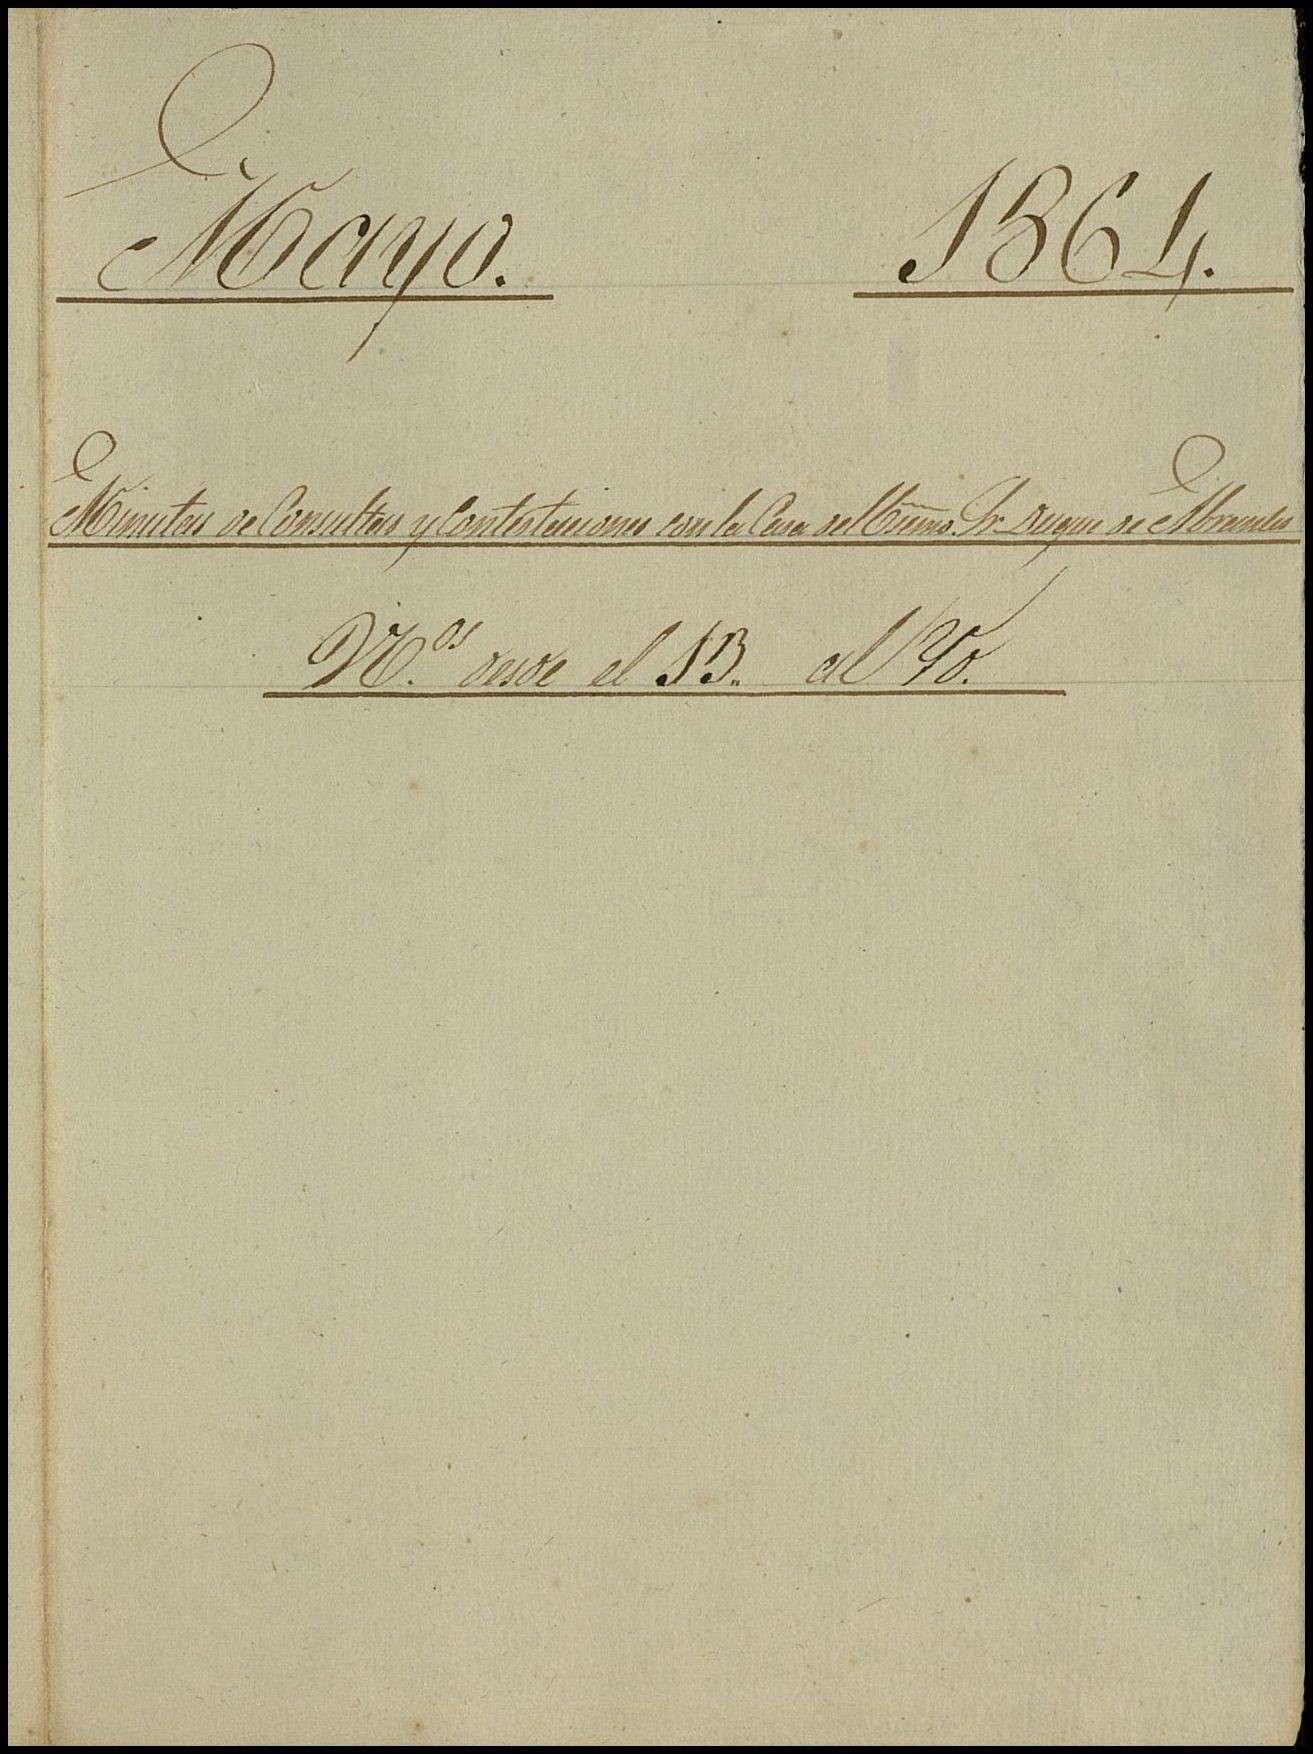 Mayo. 1864.
Minutas de Consultas y Contestaciones con la Casa del Excmo. Sr. Duque de Abrantes
N.os desde el 13. al 90.